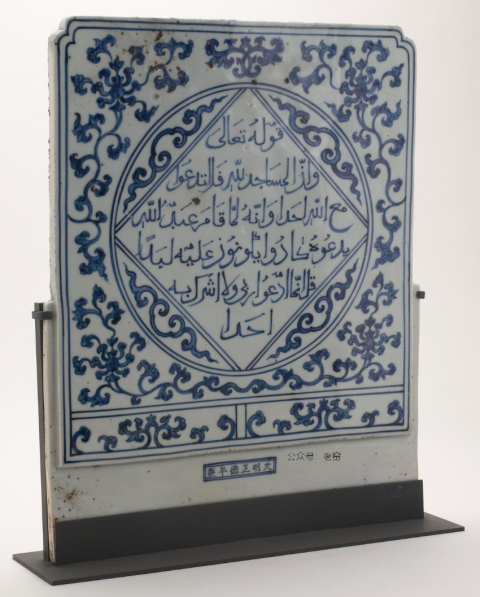 قوله تعالى
وان المساجد لله فلا تدعوا
مع الله احدا وانه لما قام عبد الله
يدعوه كادوا يكونون عليه لبدا
قل انما ادعوا ربي ولا اشرك به
احدا
大明正德年製
公众号: